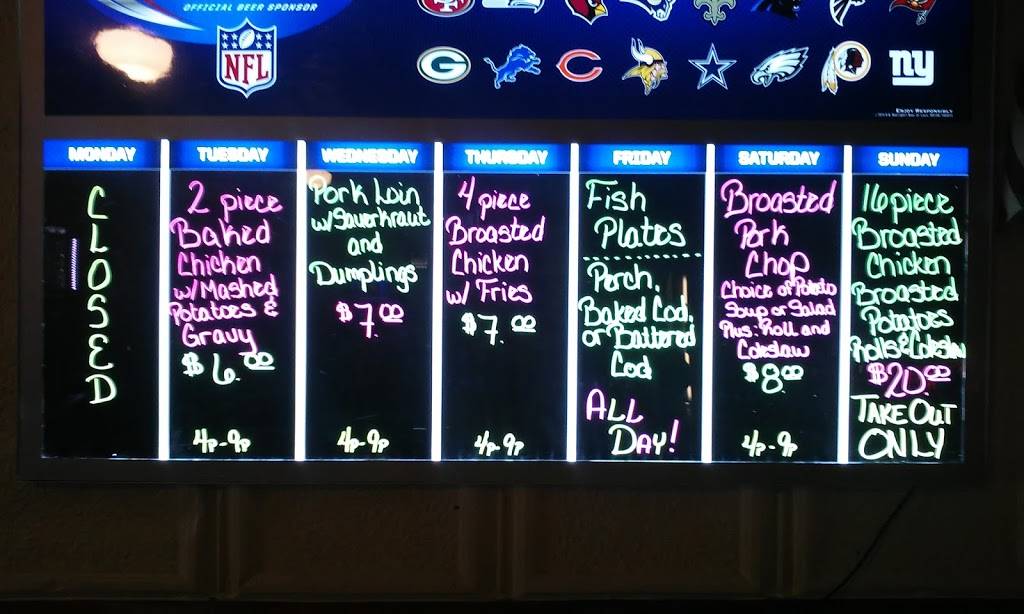 OFFICIAL BEER SPONSOR
NFL
G
C
ny
ENJOY RESPONSIBLY
MONDAY
CLOSED
TUESDAY
2 piece
Baked
Chicken
w/Mashed
Potatoes &
Gravy
$6.00
4p-9p
WEDNESDAY
Pork Loin
w/Sauerkraut
and
Dumplings
$7.00
4p-9p
THURSDAY
4 piece
Broasted
Chicken
w/ Fries
$7.00
4p-9p
FRIDAY
Fish
Plates
Perch,
Baked Cod,
or Battered
Cod
ALL
DAY!
SATURDAY
Broasted
Pork
Chop
Choice of Potato
Soup or Salad
Plus: Roll and
Coleslaw
$8.00
4p-9p
SUNDAY
16 piece
Broasted
Chicken
Broasted
Potatoes
Rolls & Coleslaw
$20.00
TAKE OUT
ONLY